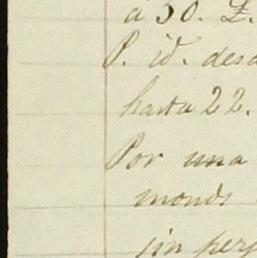 a 50. £.
P. id. desd
hasta 22.
Por una
monds
sin per